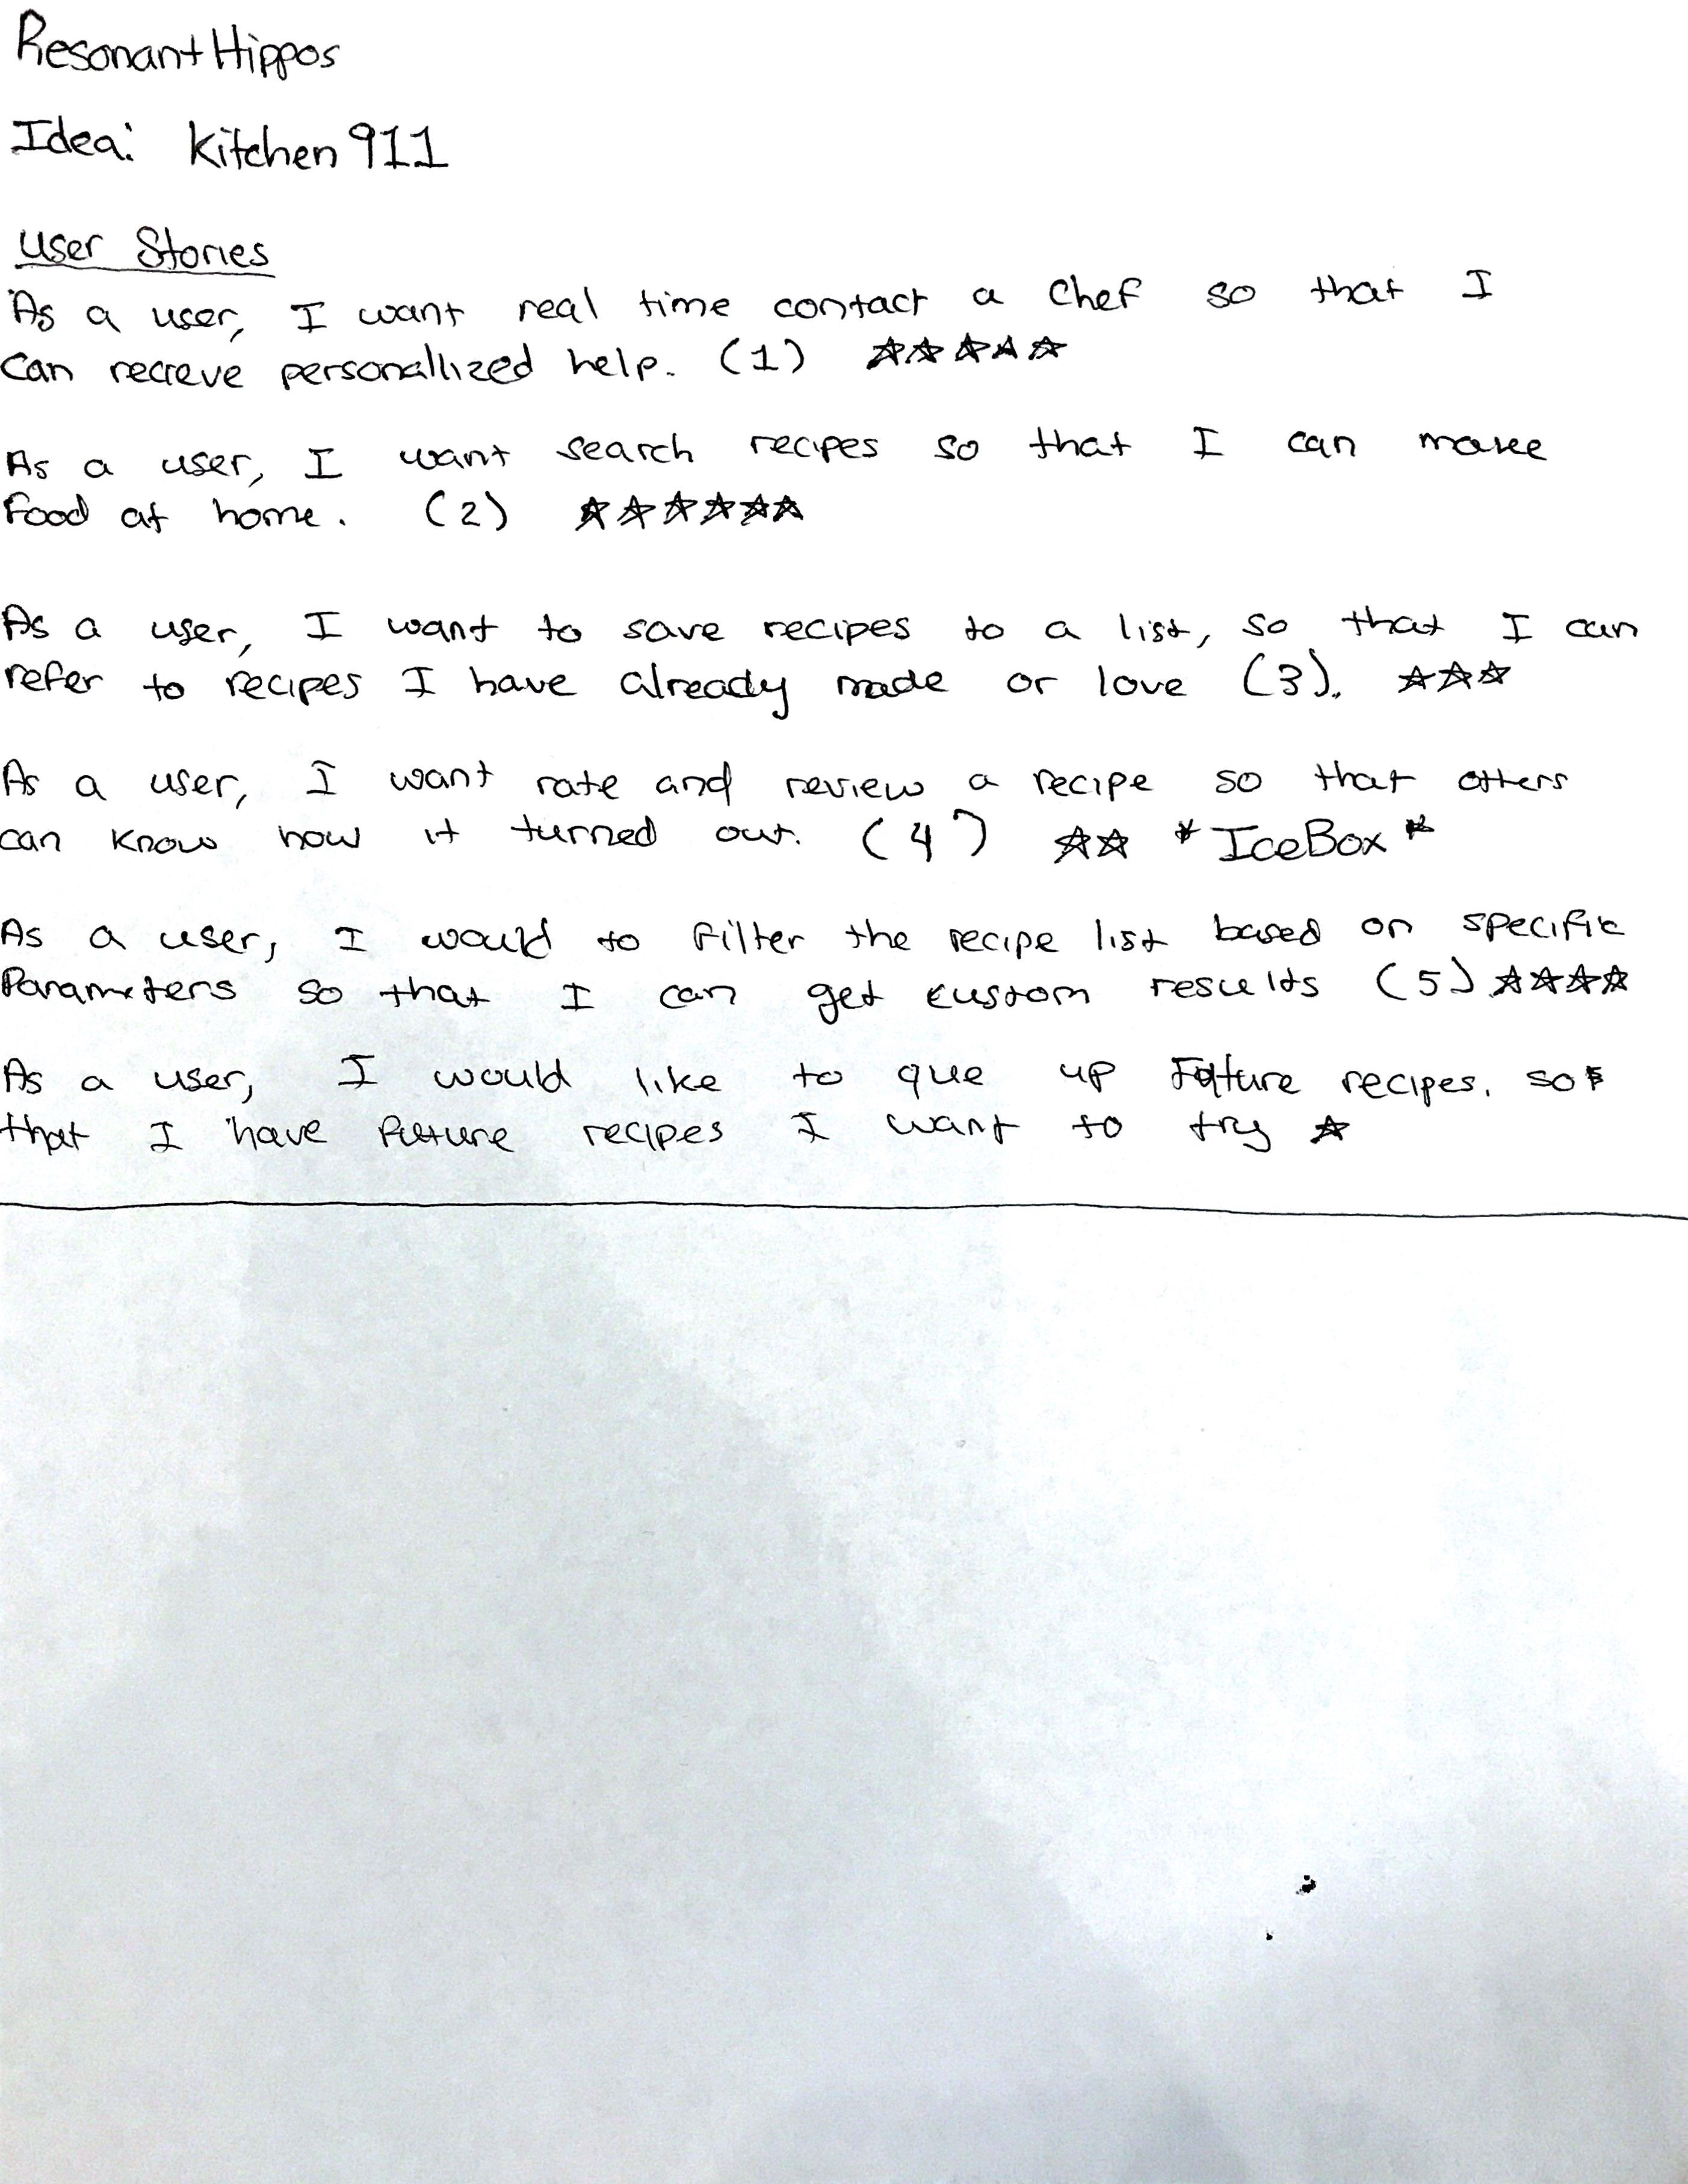 Resonant Hippos
Idea: Kitchen 911
User Stories
As a user, I want real time contact a Chef so that I
Can recieve personallized help. (1) ☆☆☆☆☆
As a user, I want search recipes so that I can make
food at home. (2) ☆☆☆☆☆☆
As a user, I want to save recipes to a list, so that I can
refer to recipes I have already made or love (3). ☆☆☆
As a user, I want rate and review a recipe so that others
can know how it turned out. (4) ☆☆ *IceBox*
As a user, I would to filter the recipe list based on specific
Parameters so that I can get custom results (5) ☆☆☆☆
As a user, I would like to que up Future recipes. so
that I have future recipes I want to try ☆